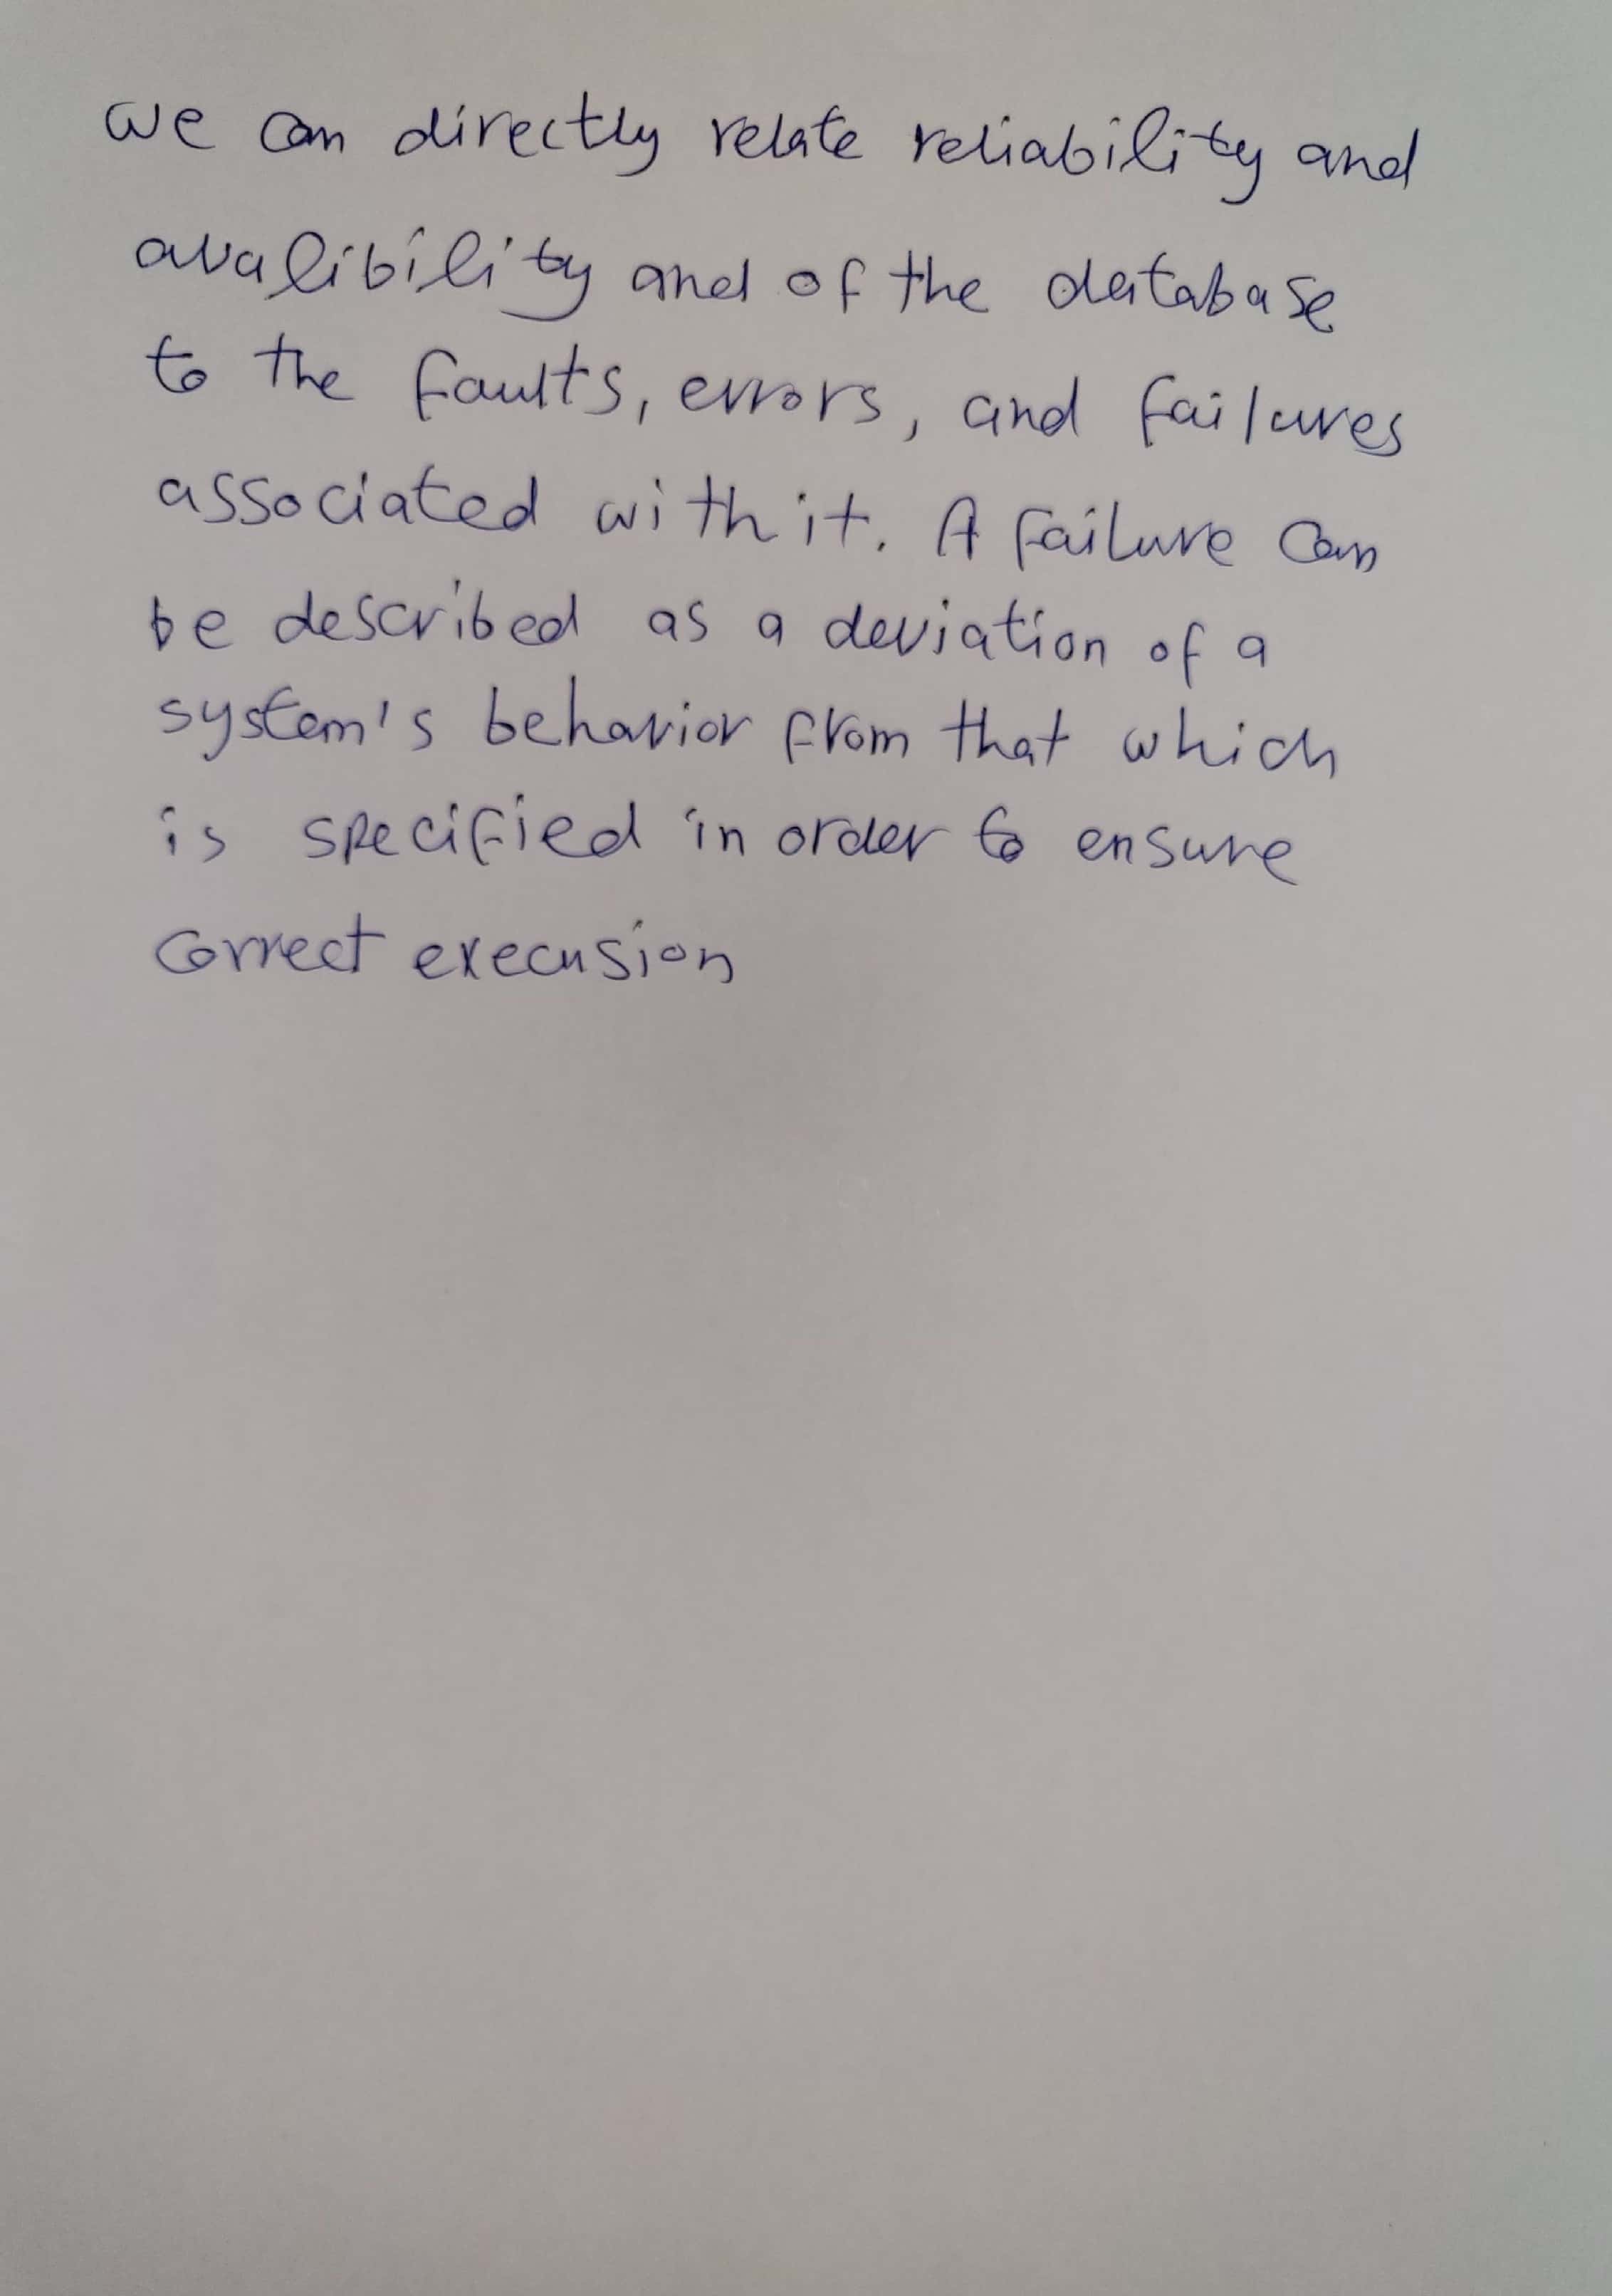 we can directly relate reliability and
avalibility and of the database
to the faults, errors, and failures
associated with it. A failure can
be described as a deviation of a
system's behavior from that which
is specified in order to ensure
correct execusion